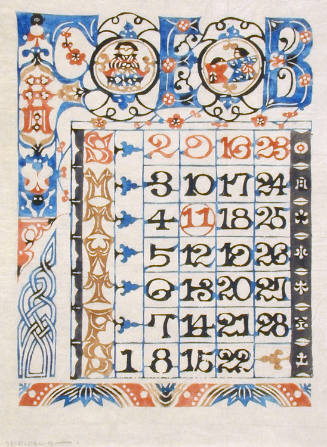 FEB
S 2 9 16 23 日
M 3 10 17 24 月
T 4 11 18 25 火
W 5 12 19 26 水
T 6 13 20 27 木
F 7 14 21 28 金
S 1 8 15 22 土